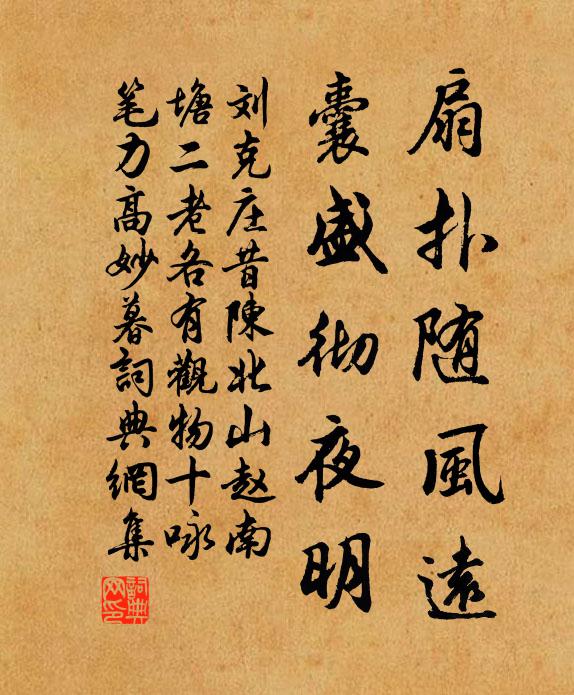 扇扑随風遠
囊盛彻夜明
刘克庄昔陳北山赵南
塘二老各有觀物十咏
笔力高妙暮詞典網集